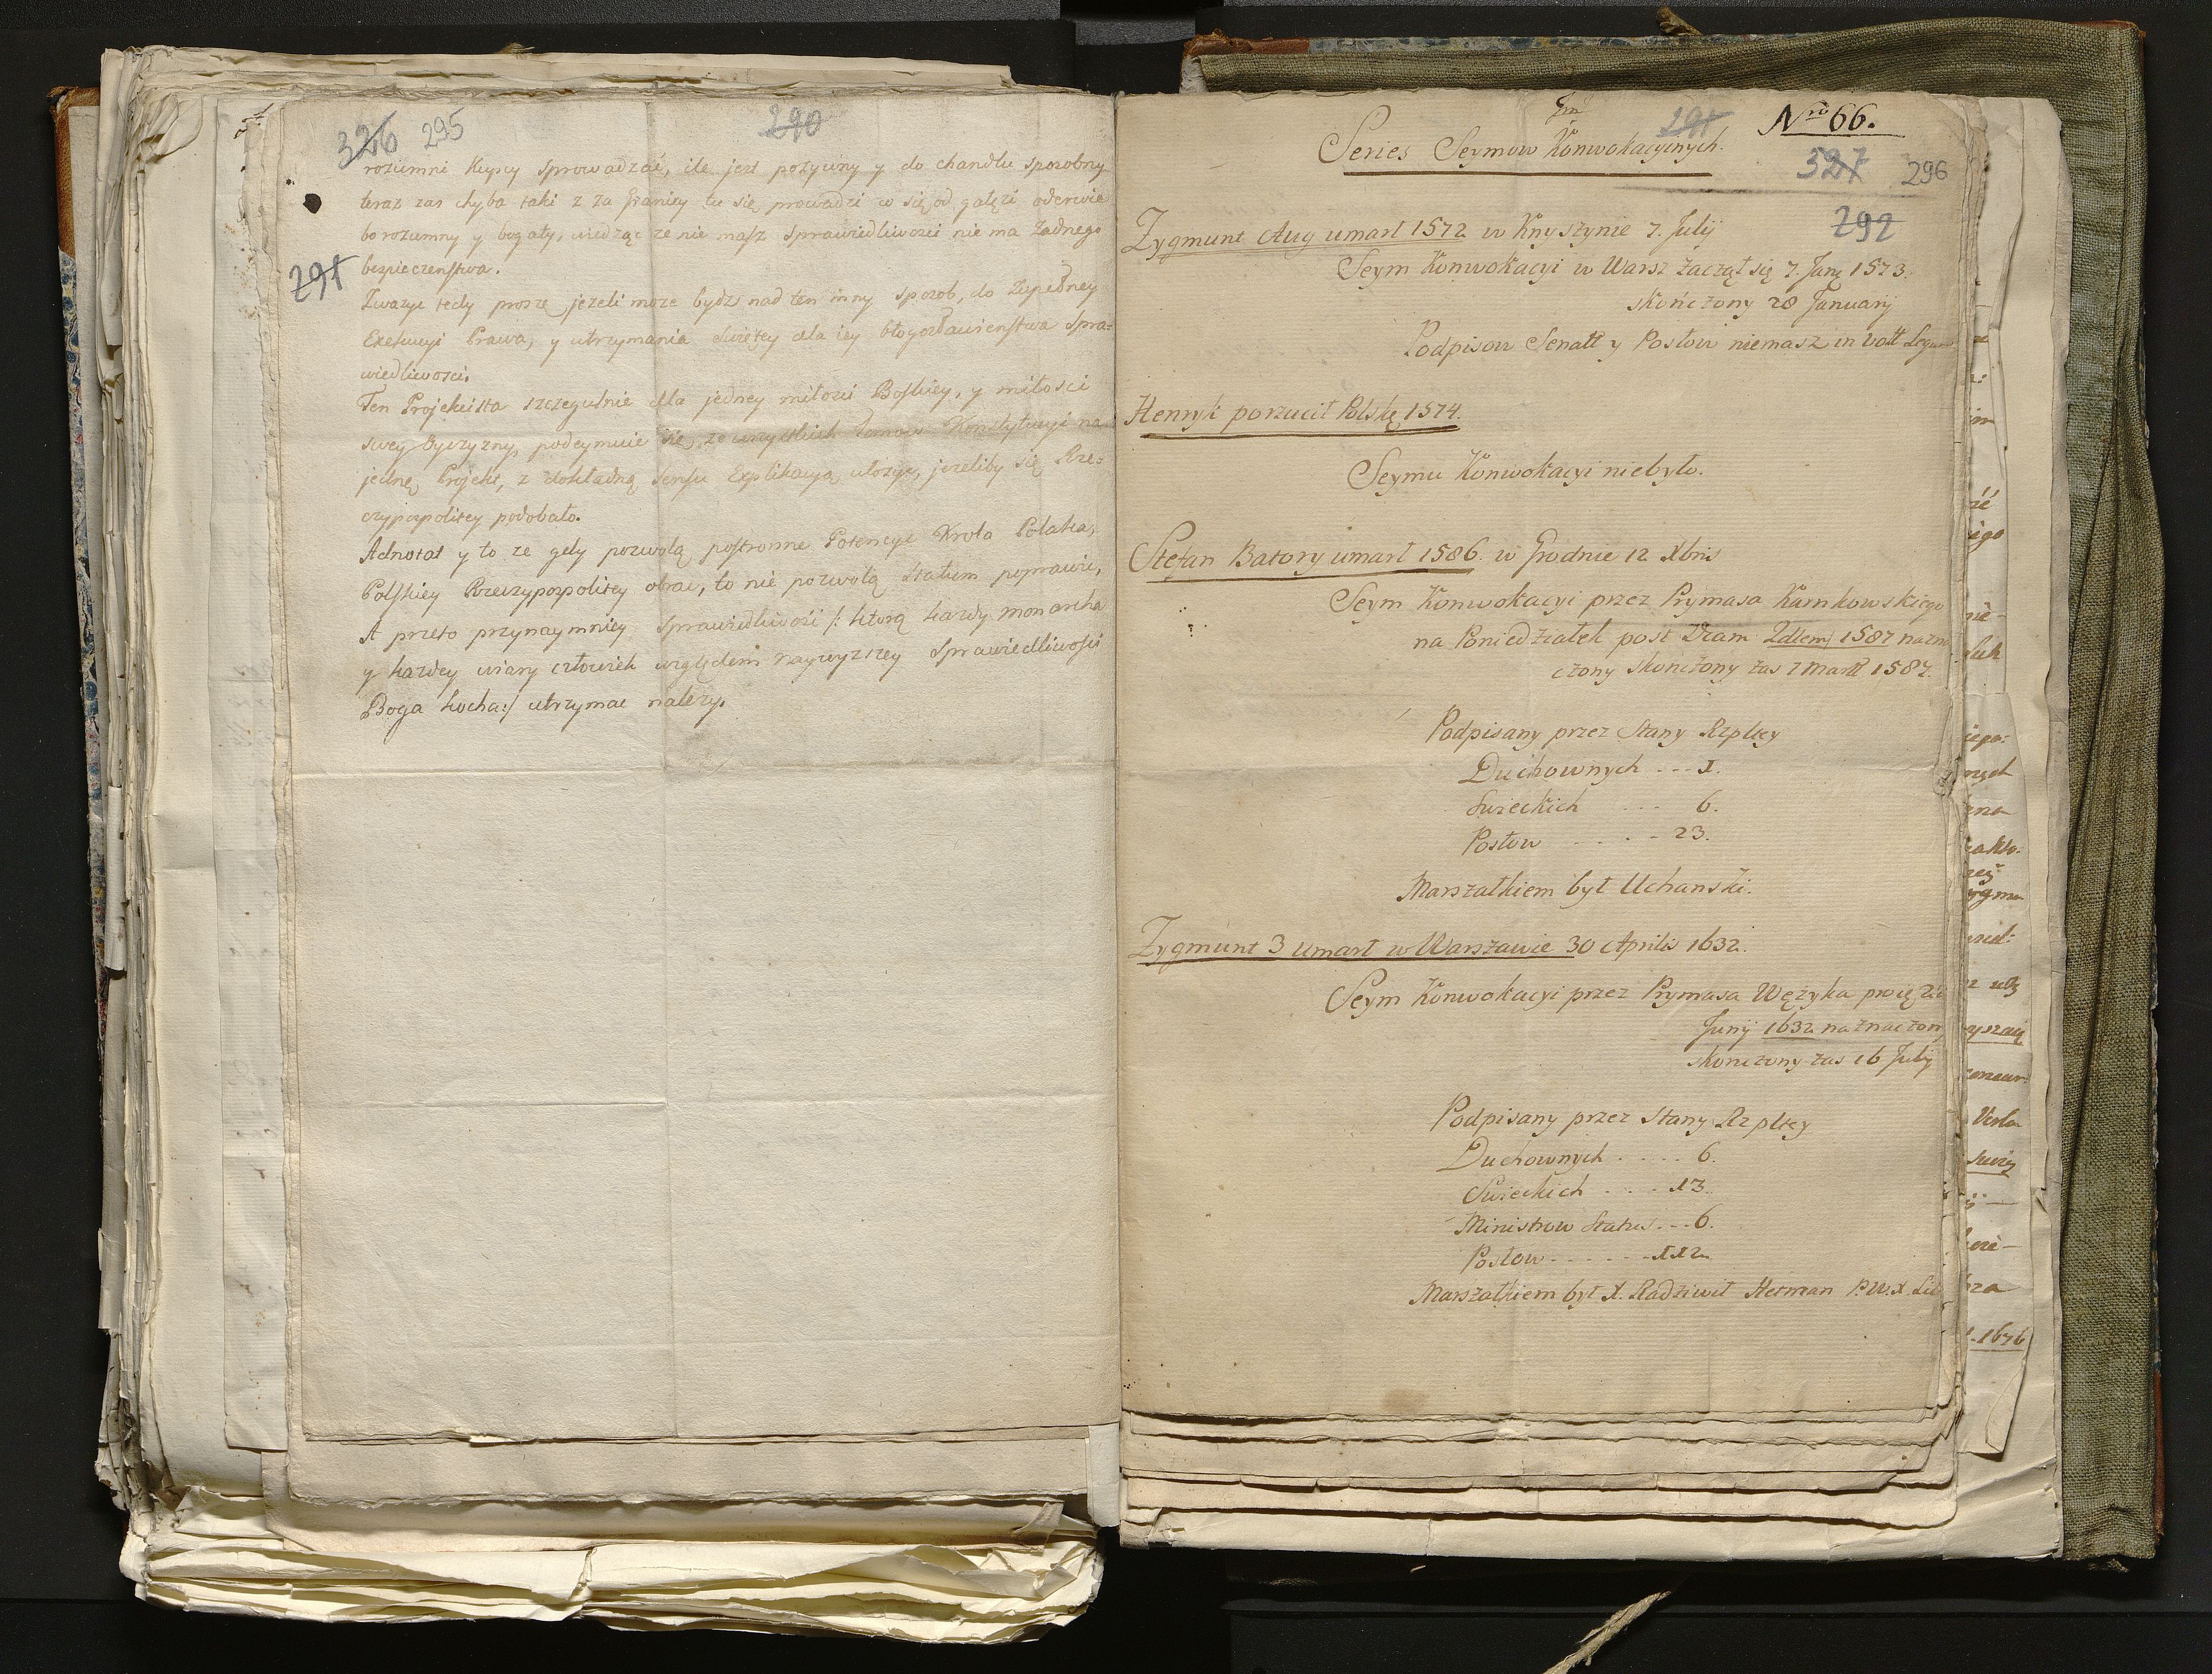 326 295
290
rozumni Kupcy sprowadzać, ile jest pożyczny y do chandlu sposobny
teraz zas chyba taki z za Granicy tu się prowadzi w się od gałęzi oderwie
bo rozumny y bogaty, wiedząc ze nie masz sprawiedliwosci nie ma żadnego
291
bezpieczenstwa.
Zwazyc tedy proszę jezeli moze bydz nad ten inny sposob, do zupełney
Exekucyi Prawa, y utrzymania swiętey dla iey błogosławienstwa Spra=
wiedliwosci.
Ten Projekcista szczegulnie dla jedney miłosci Boskiey, y miłosci
swey Oyczyzny, podeymuie się, ze wszystkich Tomow Konstytucyi na
jednę Projekt, z dokładną sensu Explikacyą ułozyc, jezeliby się Rze=
czypospolitey podobało.
Adnotat y to ze gdy pozwolą postronne Potencye Krola Polaka,
Polskiey Rzeczypospolitey obrac, to nie pozwolą statum poprawic,
A przeto przynaymniey sprawiedliwość /: ktorą kazdy monarcha
y kazdey wiary człowiek względem naywyzszey Sprawiedliwosci
Boga kocha:/ utrzymac nalezy.
291
Nro 66.
Series Seymow Konwokacyinych.
327 296
292
Zygmunt Aug umarł 1572 w Knyszynie 7. Julij
Seym Konwokacyi w Warsz zaczął się 7. Janę 1573.
skończony 28 Januarij
Podpisow Senatt y Posłow niemasz in Voll Legum
Henryk porzucił Polskę 1574.
Seymu Konwokacyi niebyło.
Stefan Batory umarł 1586. w Grodnie 12 Xbris
Seym Konwokacyi przez Prymasa Karnkowskiego
na Poniedziałek post Dcam 1587 nazna
czony skończony zas 7 Martt 1587.
Podpisany przez Stany Rzpltey
Duchownych - - - 1.
Swieckich - - - 6.
Posłow - - - - 23.
Marszałkiem był Uchanski.
Zygmunt 3 umarł w Warszawie 30 Aprilis 1632.
Seym Konwokacyi przez Prymasa Wężyka
Junij 1632 naznaczony
skonczony zas 16 Julij
Podpisany przez Stany Rzpltey
Duchownych - - - - 6.
Swieckich - - - 13.
Ministrow Status - - - 6.
Posłow - - - - - - 112
Marszałkiem był X. Radziwił Hetman P. W. X. Lit